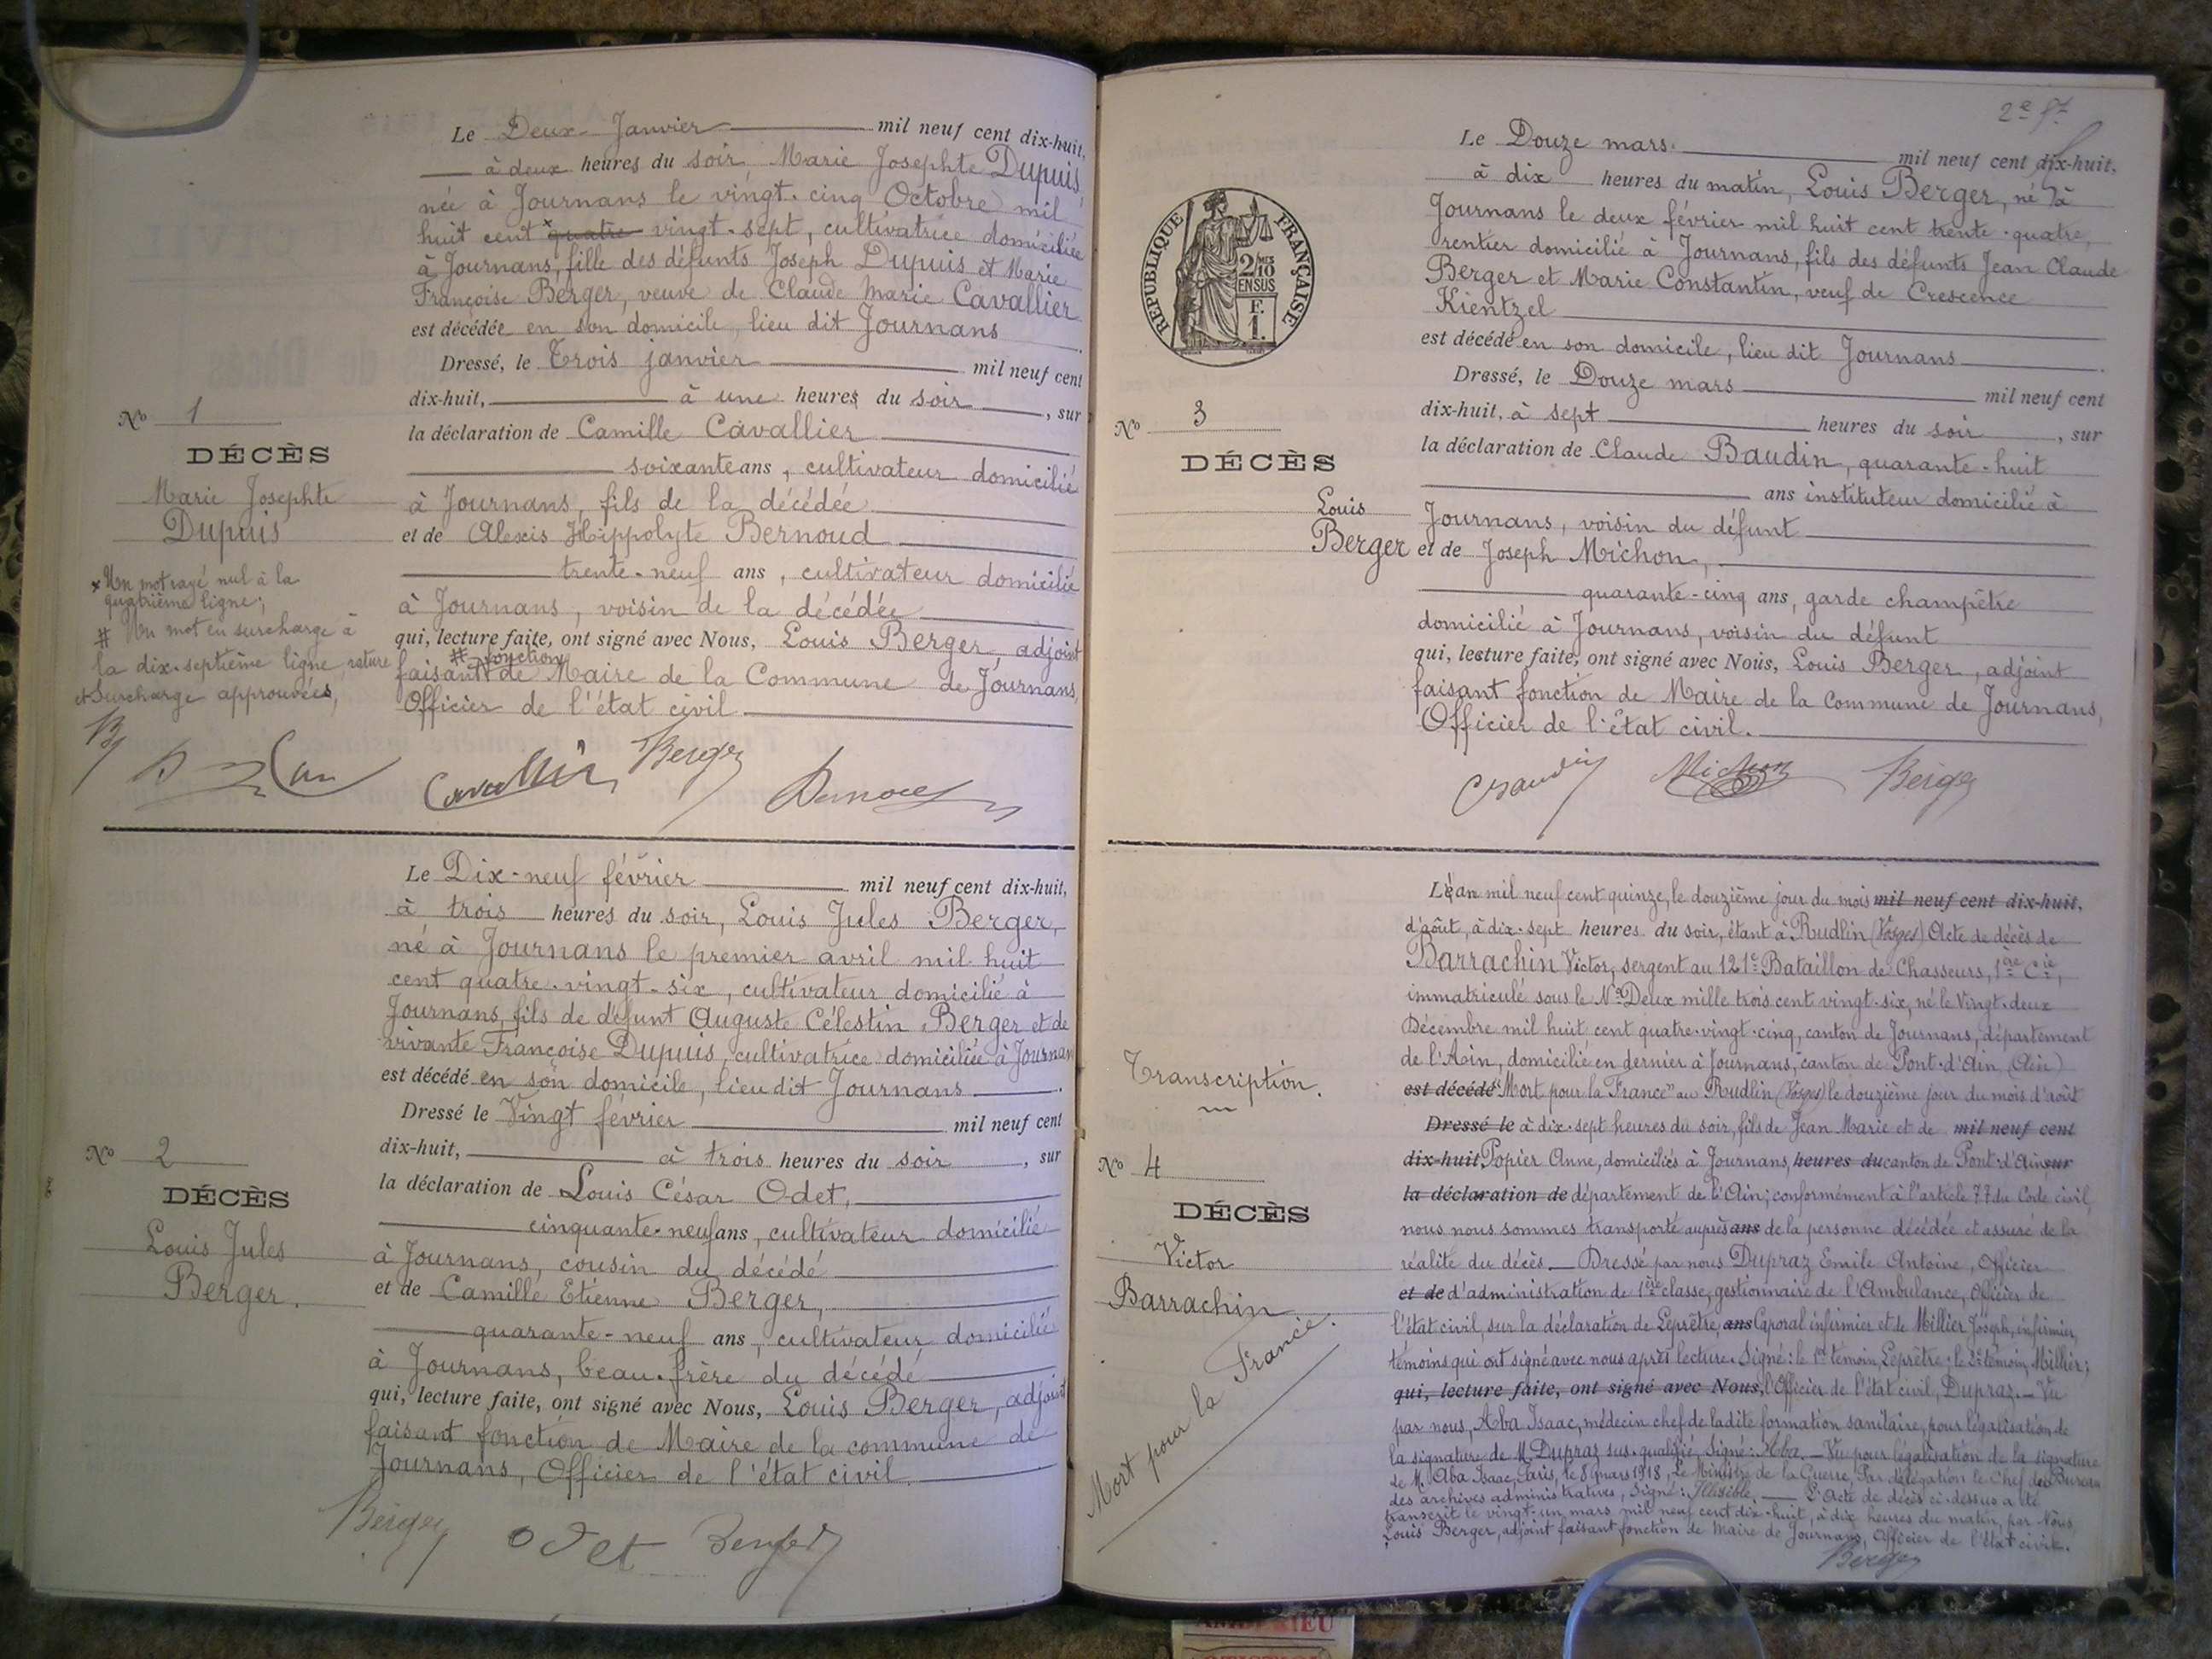 Le Deux Janvier mil neuf cent dix-huit,
à deux heures du soir Marie Josephte Dupuis
née à Journans le vingt-cinq Octobre mil
huit cent quatre vingt-sept, cultivatrice domiciliée
à Journans, fille des défunts Joseph Dupuis et Marie
Françoise Berger, veuve de Claude Marie Cavallier
est décédée en son domicile, lieu dit Journans
Dressé, le Trois janvier mil neuf cent
dix-huit, à une heures du soir, sur
la déclaration de Camille Cavallier
soixante ans, cultivateur domicilié
à Journans, fils de la décédée
et de Alexis Hippolyte Bernoud
trente-neuf ans, cultivateur domicilié
à Journans, voisin de la décédée
qui, lecture faite, ont signé avec Nous, Louis Berger, adjoint
faisant # fonction de Maire de la Commune de Journans,
Officier de l'état civil
No 1
DÉCÈS
Marie Josephte
Dupuis
x Un mot rayé nul à la
quatrième ligne;
# Un mot en surcharge à
la dix-septième ligne, rature
et Surcharge approuvées,
Cavallier Berger
Le Dix-neuf février mil neuf cent dix-huit,
à trois heures du soir, Louis Jules Berger,
né à Journans le premier avril mil huit
cent quatre-vingt-six, cultivateur domicilié à
Journans, fils de défunt Auguste Célestin Berger et de
vivante Françoise Dupuis, cultivatrice domiciliée à Journans
est décédé en son domicile, lieu dit Journans.
Dressé le Vingt février mil neuf cent
dix-huit, à trois heures du soir, sur
la déclaration de Louis César Odet,
cinquante-neuf ans, cultivateur domicilié
à Journans, cousin du décédé
et de Camille Etienne Berger,
quarante-neuf ans, cultivateur domicilié
à Journans, beau-frère du décédé
qui, lecture faite, ont signé avec Nous, Louis Berger, adjoint
faisant fonction de Maire de la commune de
Journans, Officier de l'état civil
No 2
DÉCÈS
Louis Jules
Berger.
Berger Odet Berger
2e ft
Le Douze mars. mil neuf cent dix-huit,
à dix heures du matin, Louis Berger, né à
Journans le deux février mil huit cent trente-quatre,
rentier domicilié à Journans, fils des défunts Jean Claude
Berger et Marie Constantin, veuf de Crescence
Kientzel
est décédé en son domicile, lieu dit Journans.
Dressé, le Douze mars mil neuf cent
dix-huit, à sept heures du soir, sur
la déclaration de Claude Baudin, quarante-huit
ans instituteur domicilié à
Journans, voisin du défunt
et de Joseph Michon,
quarante-cinq ans, garde champêtre
domicilié à Journans, voisin du défunt
qui, lecture faite, ont signé avec Nous, Louis Berger, adjoint
faisant fonction de Maire de la Commune de Journans,
Officier de l'état civil.
REPUBLIQUE FRANÇAISE
2/10 MES
EN SUS
F.
1.
No 3
DÉCÈS
Louis
Berger
Michon Berger
L'an mil neuf cent quinze, le douzième jour du mois mil neuf cent dix-huit,
d'août, à dix-sept heures du soir, étant à Rudlin (Vosges) Acte de décès de
Barrachin Victor, sergent au 121e Bataillon de Chasseurs, 1ère Cie,
immatriculé sous le No Deux mille trois cent vingt-six, né le Vingt-deux
Décembre mil huit cent quatre-vingt-cinq, canton de Journans, département
de l'Ain, domicilié en dernier à Journans, canton de Pont-d'Ain (Ain)
est décédé "Mort pour la France" au Rudlin (Vosges) le douzième jour du mois d'août
Dressé le à dix-sept heures du soir, fils de Jean Marie et de mil neuf cent
dix-huit, Popier Anne, domiciliés à Journans, heures du canton de Pont-d'Ain sur
la déclaration de département de l'Ain; conformément à l'article 77 du Code civil,
nous nous sommes transporté auprès ans de la personne décédée et assuré de la
réalité du décès. Dressé par nous Dupraz Emile Antoine, Officier
et de d'administration de 1ère classe, gestionnaire de l'Ambulance, Officier de
l'état civil, sur la déclaration de Leprêtre, ans Caporal infirmier et de Millier Joseph, infirmier,
témoins qui ont signé avec nous après lecture. Signé: le 1er témoin, Leprêtre; le 2e témoin, Millier;
qui, lecture faite, ont signé avec Nous, l'Officier de l'état civil, Dupraz. Vu
par nous, Aba Isaac, médecin chef de ladite formation sanitaire, pour légalisation de
la signature de M. Dupraz sus-qualifié, Signé: Aba. Vu pour légalisation de la signature
de M. Aba Isaac, Paris, le 8 mars 1918, Le Ministre de la Guerre, Par délégation le Chef du Bureau
des archives administratives, Signé: Illisible. L'Acte de décès ci-dessus a été
transcrit le vingt-un mars mil neuf cent dix-huit, à dix heures du matin, par Nous
Louis Berger, adjoint faisant fonction de Maire de Journans, Officier de l'état civil.
Berger
Transcription.
No 4
DÉCÈS
Victor
Barrachin
Mort pour la France.